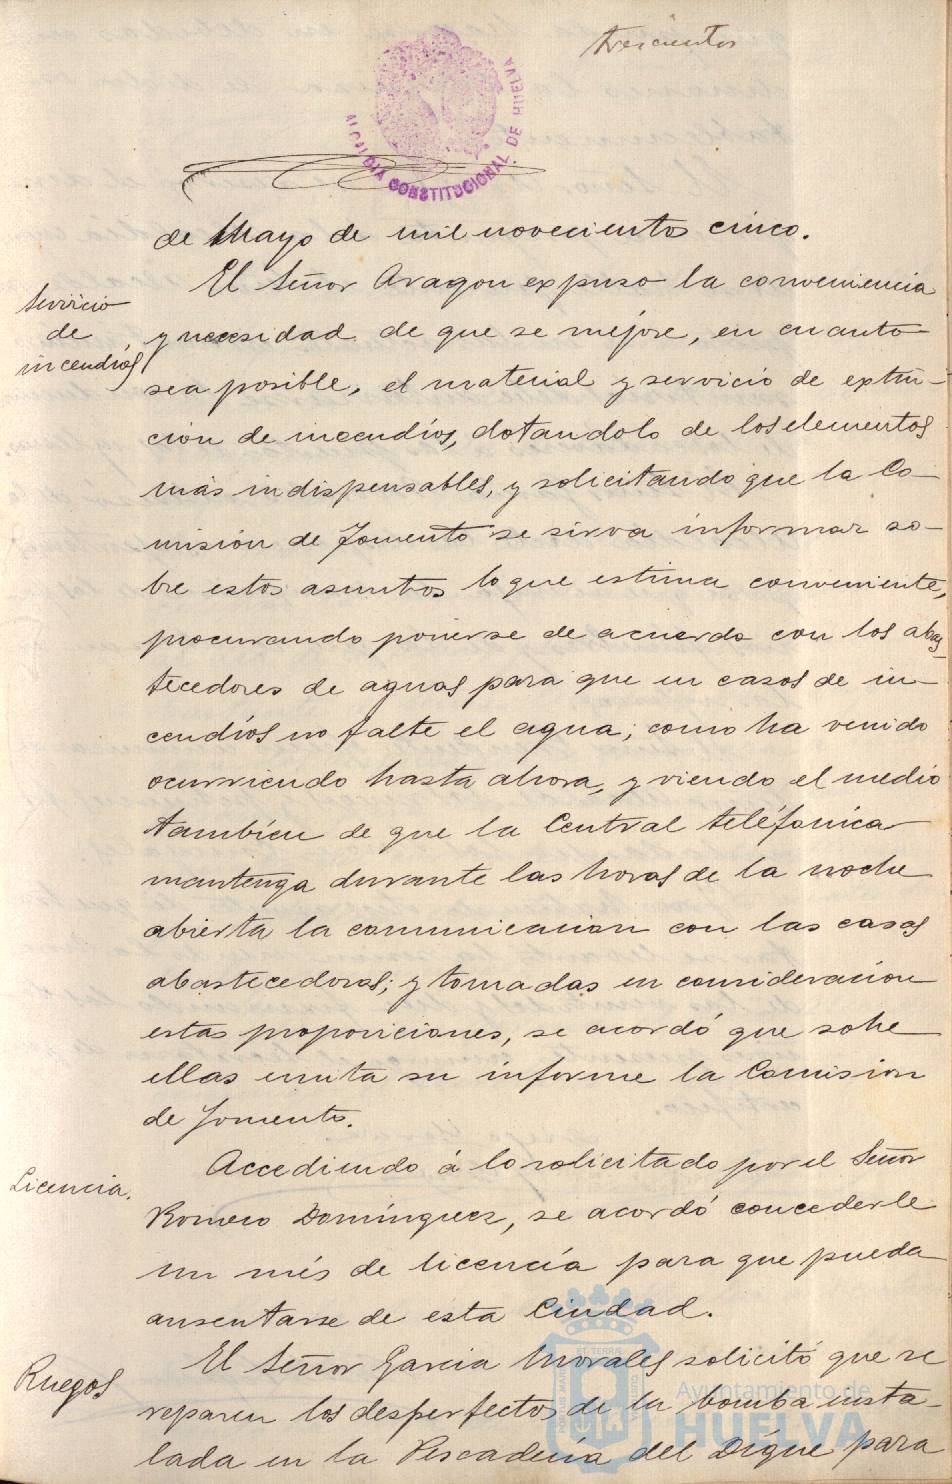 trescientos
ALCALDIA CONSTITUCIONAL DE HUELVA
de Mayo de mil novecientos cinco.
Servicio
de
incendios
El Señor Aragon expuso la conveniencia
y necesidad de que se mejore, en cuanto
sea posible, el material y servicio de extin-
ción de incendios, dotandolo de los elementos
más indispensables, y solicitando que la Co-
misión de Fomento se sirva informar so-
bre estos asuntos lo que estima conveniente,
procurando ponerse de acuerdo con los abas-
tecedores de aguas para que en casos de in-
cendios no falte el agua; como ha venido
ocurriendo hasta ahora, y viendo el medio
tambien de que la Central teléfonica
mantenga durante las horas de la noche
abierta la comunicacion con las casas
abastecedoras; y tomadas en consideracion
estas proposiciones, se acordó que sobre
ellas emita su informe la Comision
de Fomento.
Licencia.
Accediendo á lo solicitado por el Señor
Romero Domínguez, se acordó concederle
un més de licencía para que pueda
ausentarse de esta Ciudad.
Ruegos
El Señor Garcia Morales solicitó que se
reparen los desperfectos de la bomba insta-
lada en la Pescadería del Díque para
Ayuntamiento de
HUELVA